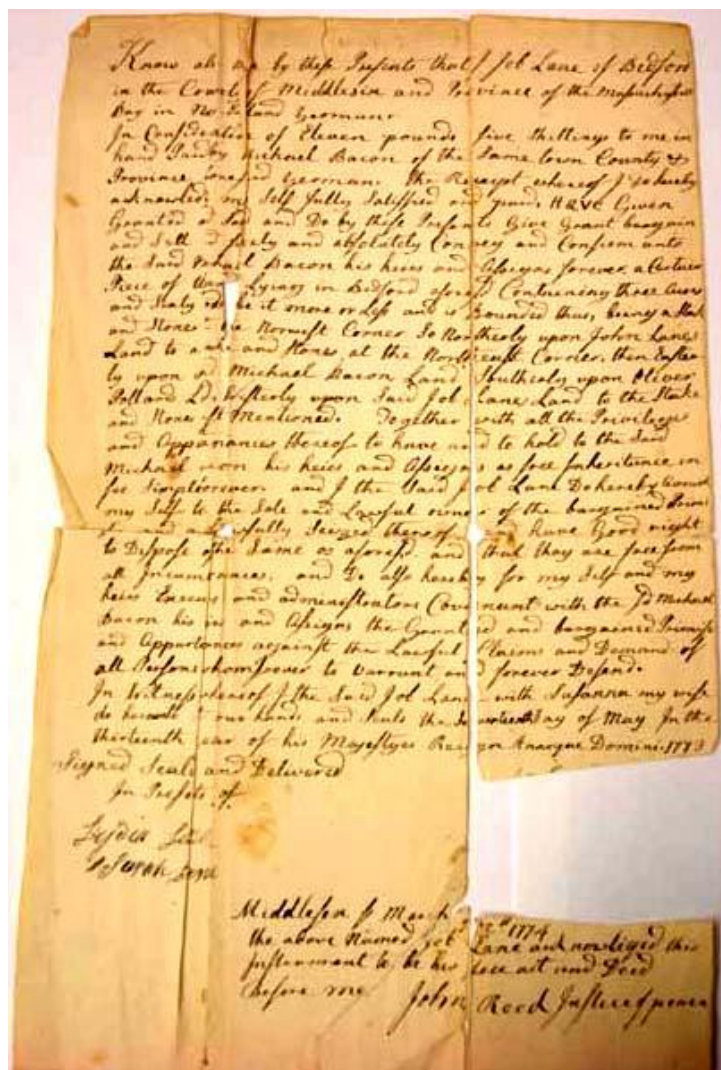 Know all me by these Presents that I Job Lane of Bedford
in the County of Middlesex and Province of the Massachus
Bay in New England Yeoman
In Consideration of Eleven pounds five shillings to me in
hand Paid by Michael Bacon of the Same town County &
Province Yeoman the Receipt whereof I do hereby
acknowledg my Self fully Satisfied and paid. Have Given
Granted Sold and Do by these Presents Give Grant bargain
and Sell freely and absolutely Convey and Confirm unto
the Said Michael Bacon his heirs and Assigns forever, a Certain
Piece of Land Lying in Bedford Containing three Acres
and be it more or Less and is Bounded thus, being a Stake
and Stones the Norwest Corner So Northerly upon John Lane
Land to a and Stones at the North east Corner, then Easter
ly upon sd Michael Bacon Land Southerly upon Oliver
Pollard Ld. Westerly upon Said Job Lane Land to the Stake
and Stones Mentioned. Together with all the Privileges
and thereof to have and to hold to the Said
Michael his heirs and Assigns as free Inheritance in
fee and I the Said Job Lane Do hereby
my Self to the Sole and Lawful owner of the bargained
and fully Seized thereof and have Good right
to Dispose of the Same as and that they are free from
all and Do also hereby for my Self and my
heirs and administrators Covenant with the Sd Michael
Bacon his and Assigns the and bargained
and against the Lawful Claims and Demand of
all Persons whomsoever to Warrant and forever Defend.
In Witness whereof I the Said Job Lane with Susanna my wife
do our hands and Seals the Day of May In the
thirteenth year of his Majestyes Reign Annoque Domini. 1773
Signed Seald and Delivered
In of
Lydia
Sarah Lane
Middlesex ss March 1774
the above Named Job Lane acknowliged this
Instrument to be his free act and Deed
before me John Reed Justice of peace